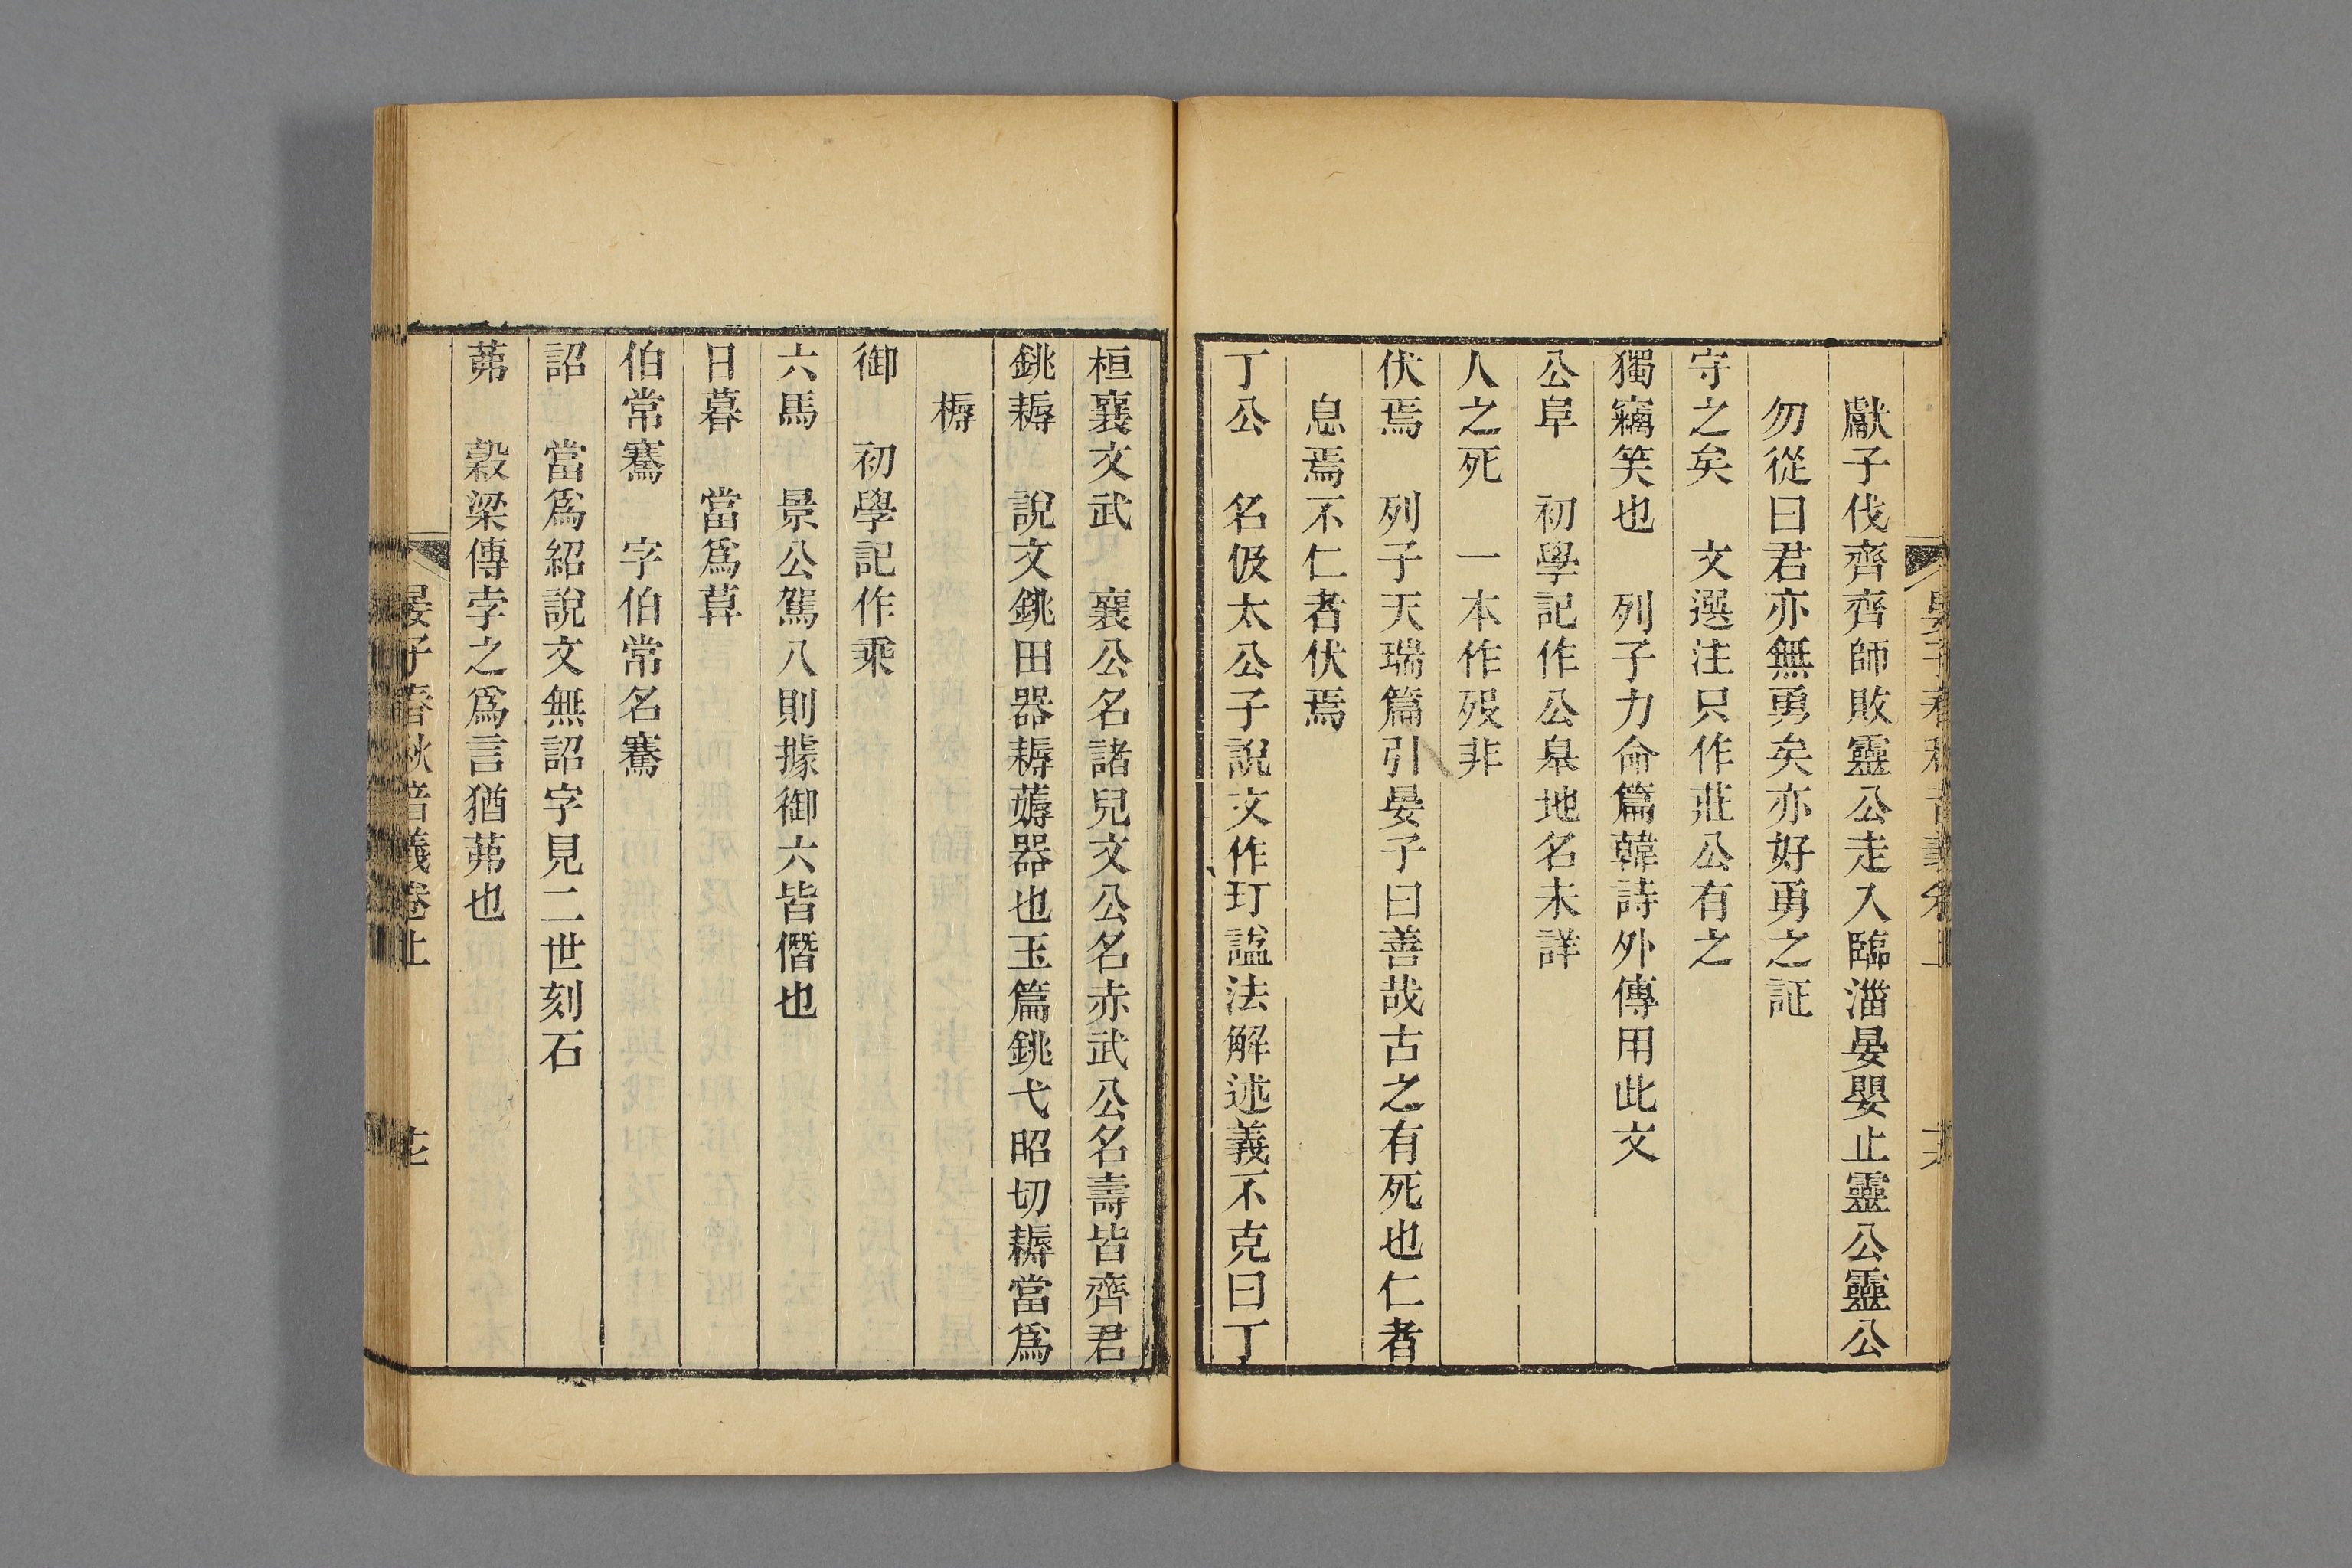 獻子伐齊齊師敗靈公走入臨淄晏嬰止靈公靈公
勿從曰君亦無勇矣亦好勇之証
守之矣　文選注只作莊公有之
獨竊笑也　列子力命篇韓詩外傳用此文
公阜　初學記作公皋地名未詳
人之死　一本作歿非
伏焉　列子天瑞篇引晏子曰善哉古之有死也仁者
息焉不仁者伏焉
丁公　名伋太公子說文作玎諡法解述義不克曰丁
桓襄文武　襄公名諸兒文公名赤武公名壽皆齊君
銚耨　說文銚田器耨薅器也玉篇銚弋昭切耨當爲
槈
御　初學記作乘
六馬　景公駕八則據御六皆僭也
日暮　當爲莫
伯常騫　字伯常名騫
詔　當爲紹說文無詔字見二世刻石
茀　穀梁傳孛之爲言猶茀也
晏子春秋音義卷上